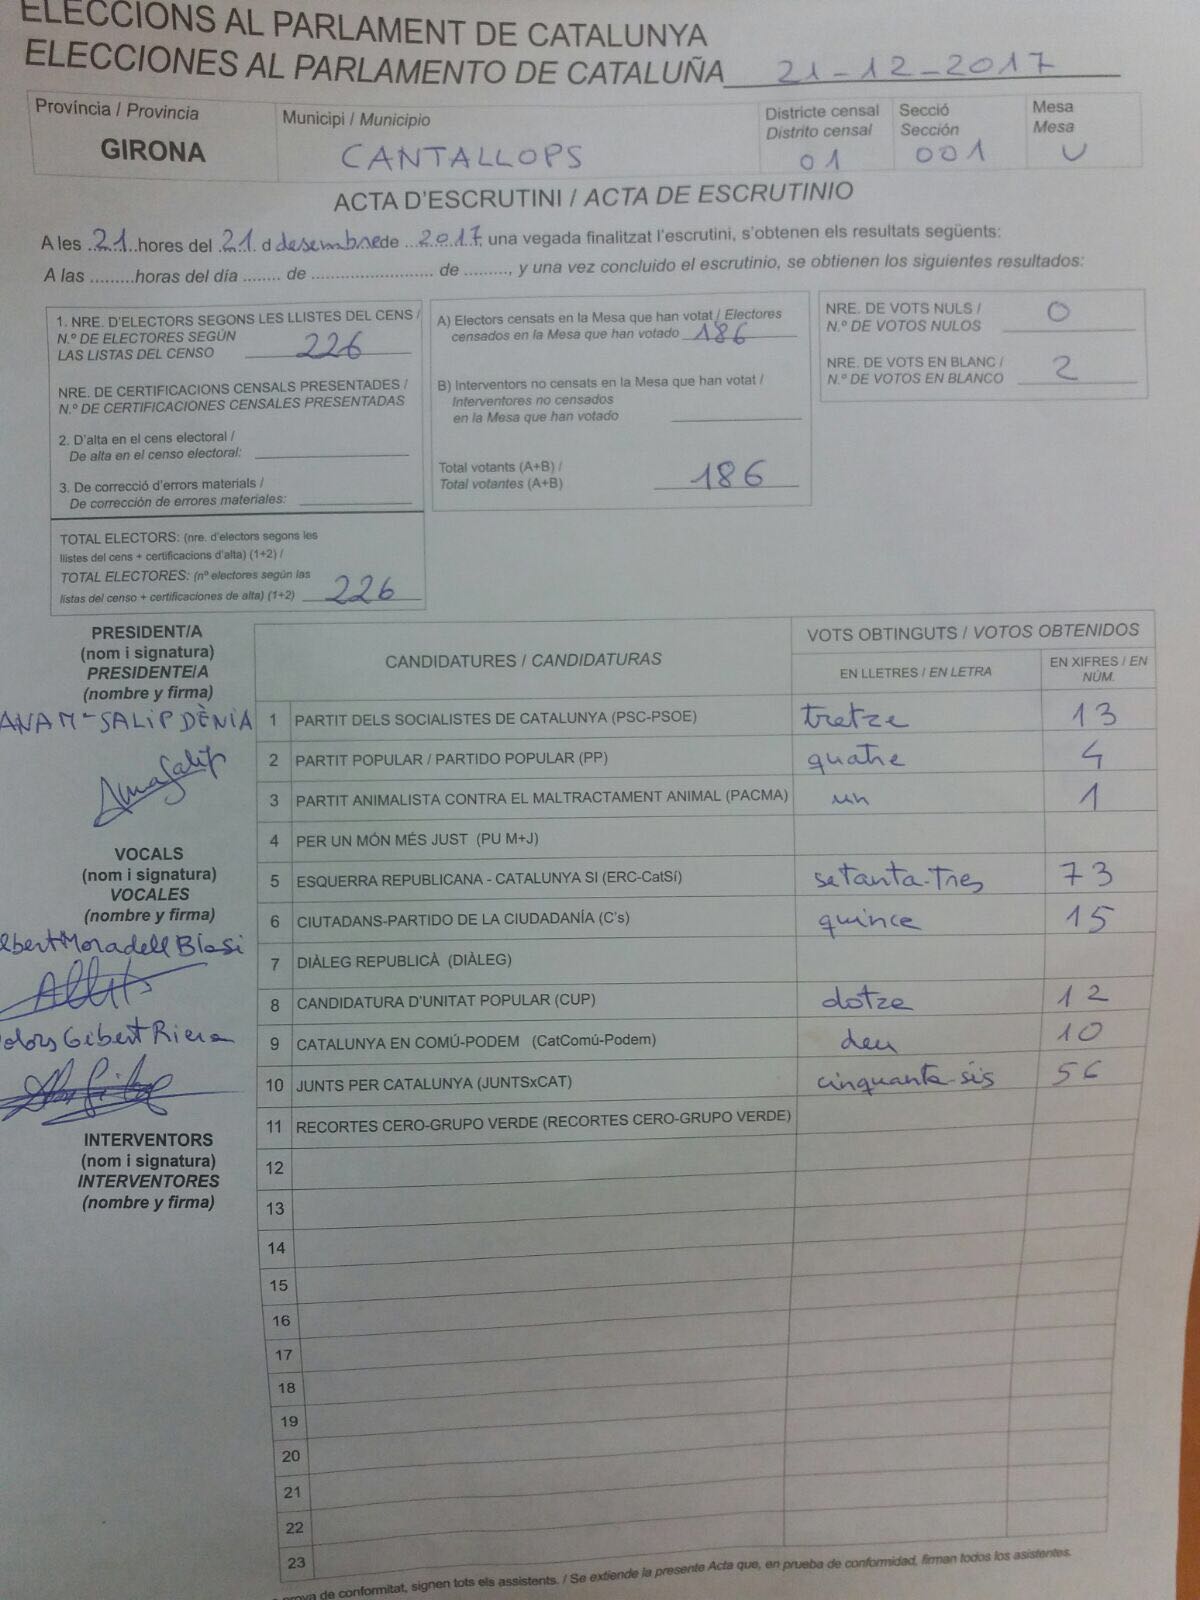 ELECCIONS AL PARLAMENT DE CATALUNYA
ELECCIONES AL PARLAMENTO DE CATALUÑA 21-12-2017
Província / Provincia
GIRONA
Municipi / Municipio
CANTALLOPS
Districte censal
Distrito censal
01
Secció
Sección
001
Mesa
Mesa
U
ACTA D'ESCRUTINI / ACTA DE ESCRUTINIO
A les ..21..hores del .21. d desembre de ..2017, una vegada finalitzat l'escrutini, s'obtenen els resultats següents:
A las .........horas del día ........ de ............................ de ........., y una vez concluido el escrutinio, se obtienen los siguientes resultados:
1. NRE. D'ELECTORS SEGONS LES LLISTES DEL CENS /
N.º DE ELECTORES SEGÚN
LAS LISTAS DEL CENSO 226
NRE. DE CERTIFICACIONS CENSALS PRESENTADES /
N.º DE CERTIFICACIONES CENSALES PRESENTADAS
2. D'alta en el cens electoral /
De alta en el censo electoral:
3. De correcció d'errors materials /
De corrección de errores materiales:
TOTAL ELECTORS: (nre. d'electors segons les
llistes del cens + certificacions d'alta) (1+2) /
TOTAL ELECTORES: (nº electores según las
listas del censo + certificaciones de alta) (1+2) 226
A) Electors censats en la Mesa que han votat / Electores
censados en la Mesa que han votado 186
B) Interventors no censats en la Mesa que han votat /
Interventores no censados
en la Mesa que han votado
Total votants (A+B) /
Total votantes (A+B) 186
NRE. DE VOTS NULS /
N.º DE VOTOS NULOS 0
NRE. DE VOTS EN BLANC /
N.º DE VOTOS EN BLANCO 2
PRESIDENT/A
(nom i signatura)
PRESIDENTE/A
(nombre y firma)
ANA Mª SALIP DÈNIA
VOCALS
(nom i signatura)
VOCALES
(nombre y firma)
lbert Moradell Blasi
olors Gibert Riera
INTERVENTORS
(nom i signatura)
INTERVENTORES
(nombre y firma)
CANDIDATURES / CANDIDATURAS
VOTS OBTINGUTS / VOTOS OBTENIDOS
EN LLETRES / EN LETRA
EN XIFRES / EN
NÚM.
1 PARTIT DELS SOCIALISTES DE CATALUNYA (PSC-PSOE) tretze 13
2 PARTIT POPULAR / PARTIDO POPULAR (PP) quatre 4
3 PARTIT ANIMALISTA CONTRA EL MALTRACTAMENT ANIMAL (PACMA) un 1
4 PER UN MÓN MÉS JUST (PU M+J)
5 ESQUERRA REPUBLICANA - CATALUNYA SI (ERC-CatSí) setanta-tres 73
6 CIUTADANS-PARTIDO DE LA CIUDADANÍA (C's) quince 15
7 DIÀLEG REPUBLICÀ (DIÀLEG)
8 CANDIDATURA D'UNITAT POPULAR (CUP) dotze 12
9 CATALUNYA EN COMÚ-PODEM (CatComú-Podem) deu 10
10 JUNTS PER CATALUNYA (JUNTSxCAT) cinquanta-sis 56
11 RECORTES CERO-GRUPO VERDE (RECORTES CERO-GRUPO VERDE)
12
13
14
15
16
17
18
19
20
21
22
23
prova de conformitat, signen tots els assistents. / Se extiende la presente Acta que, en prueba de conformidad, firman todos los asistentes.